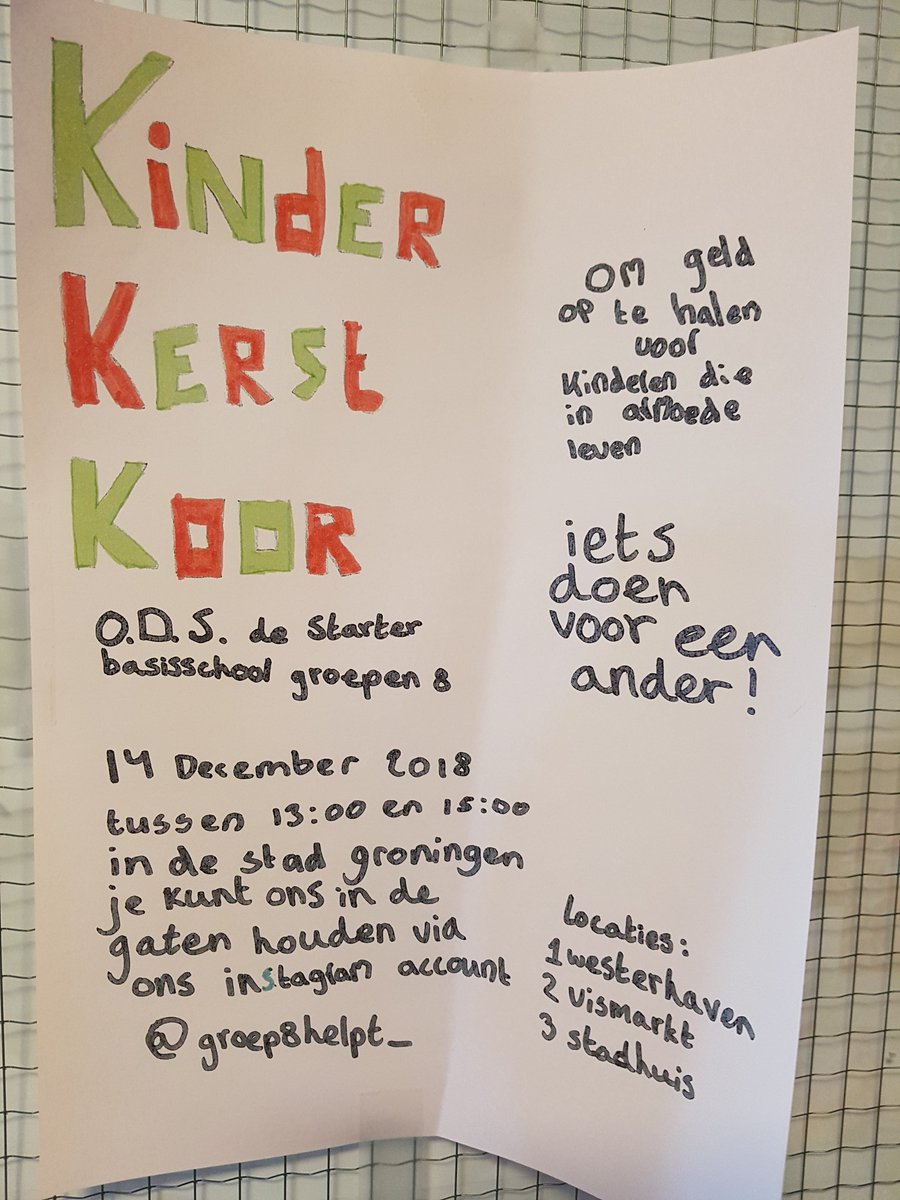 Kinder
Kerst
Koor
O.D.S. de Starter
basisschool groepen 8
14 December 2018
tussen 13:00 en 15:00
in de stad groningen
je kunt ons in de
gaten houden via
ons instagram account
@groep8helpt_
om geld
op te halen
voor
kinderen die
in armoede
leven
iets
doen
voor een
ander!
Locaties:
1 westerhaven
2 vismarkt
3 stadhuis